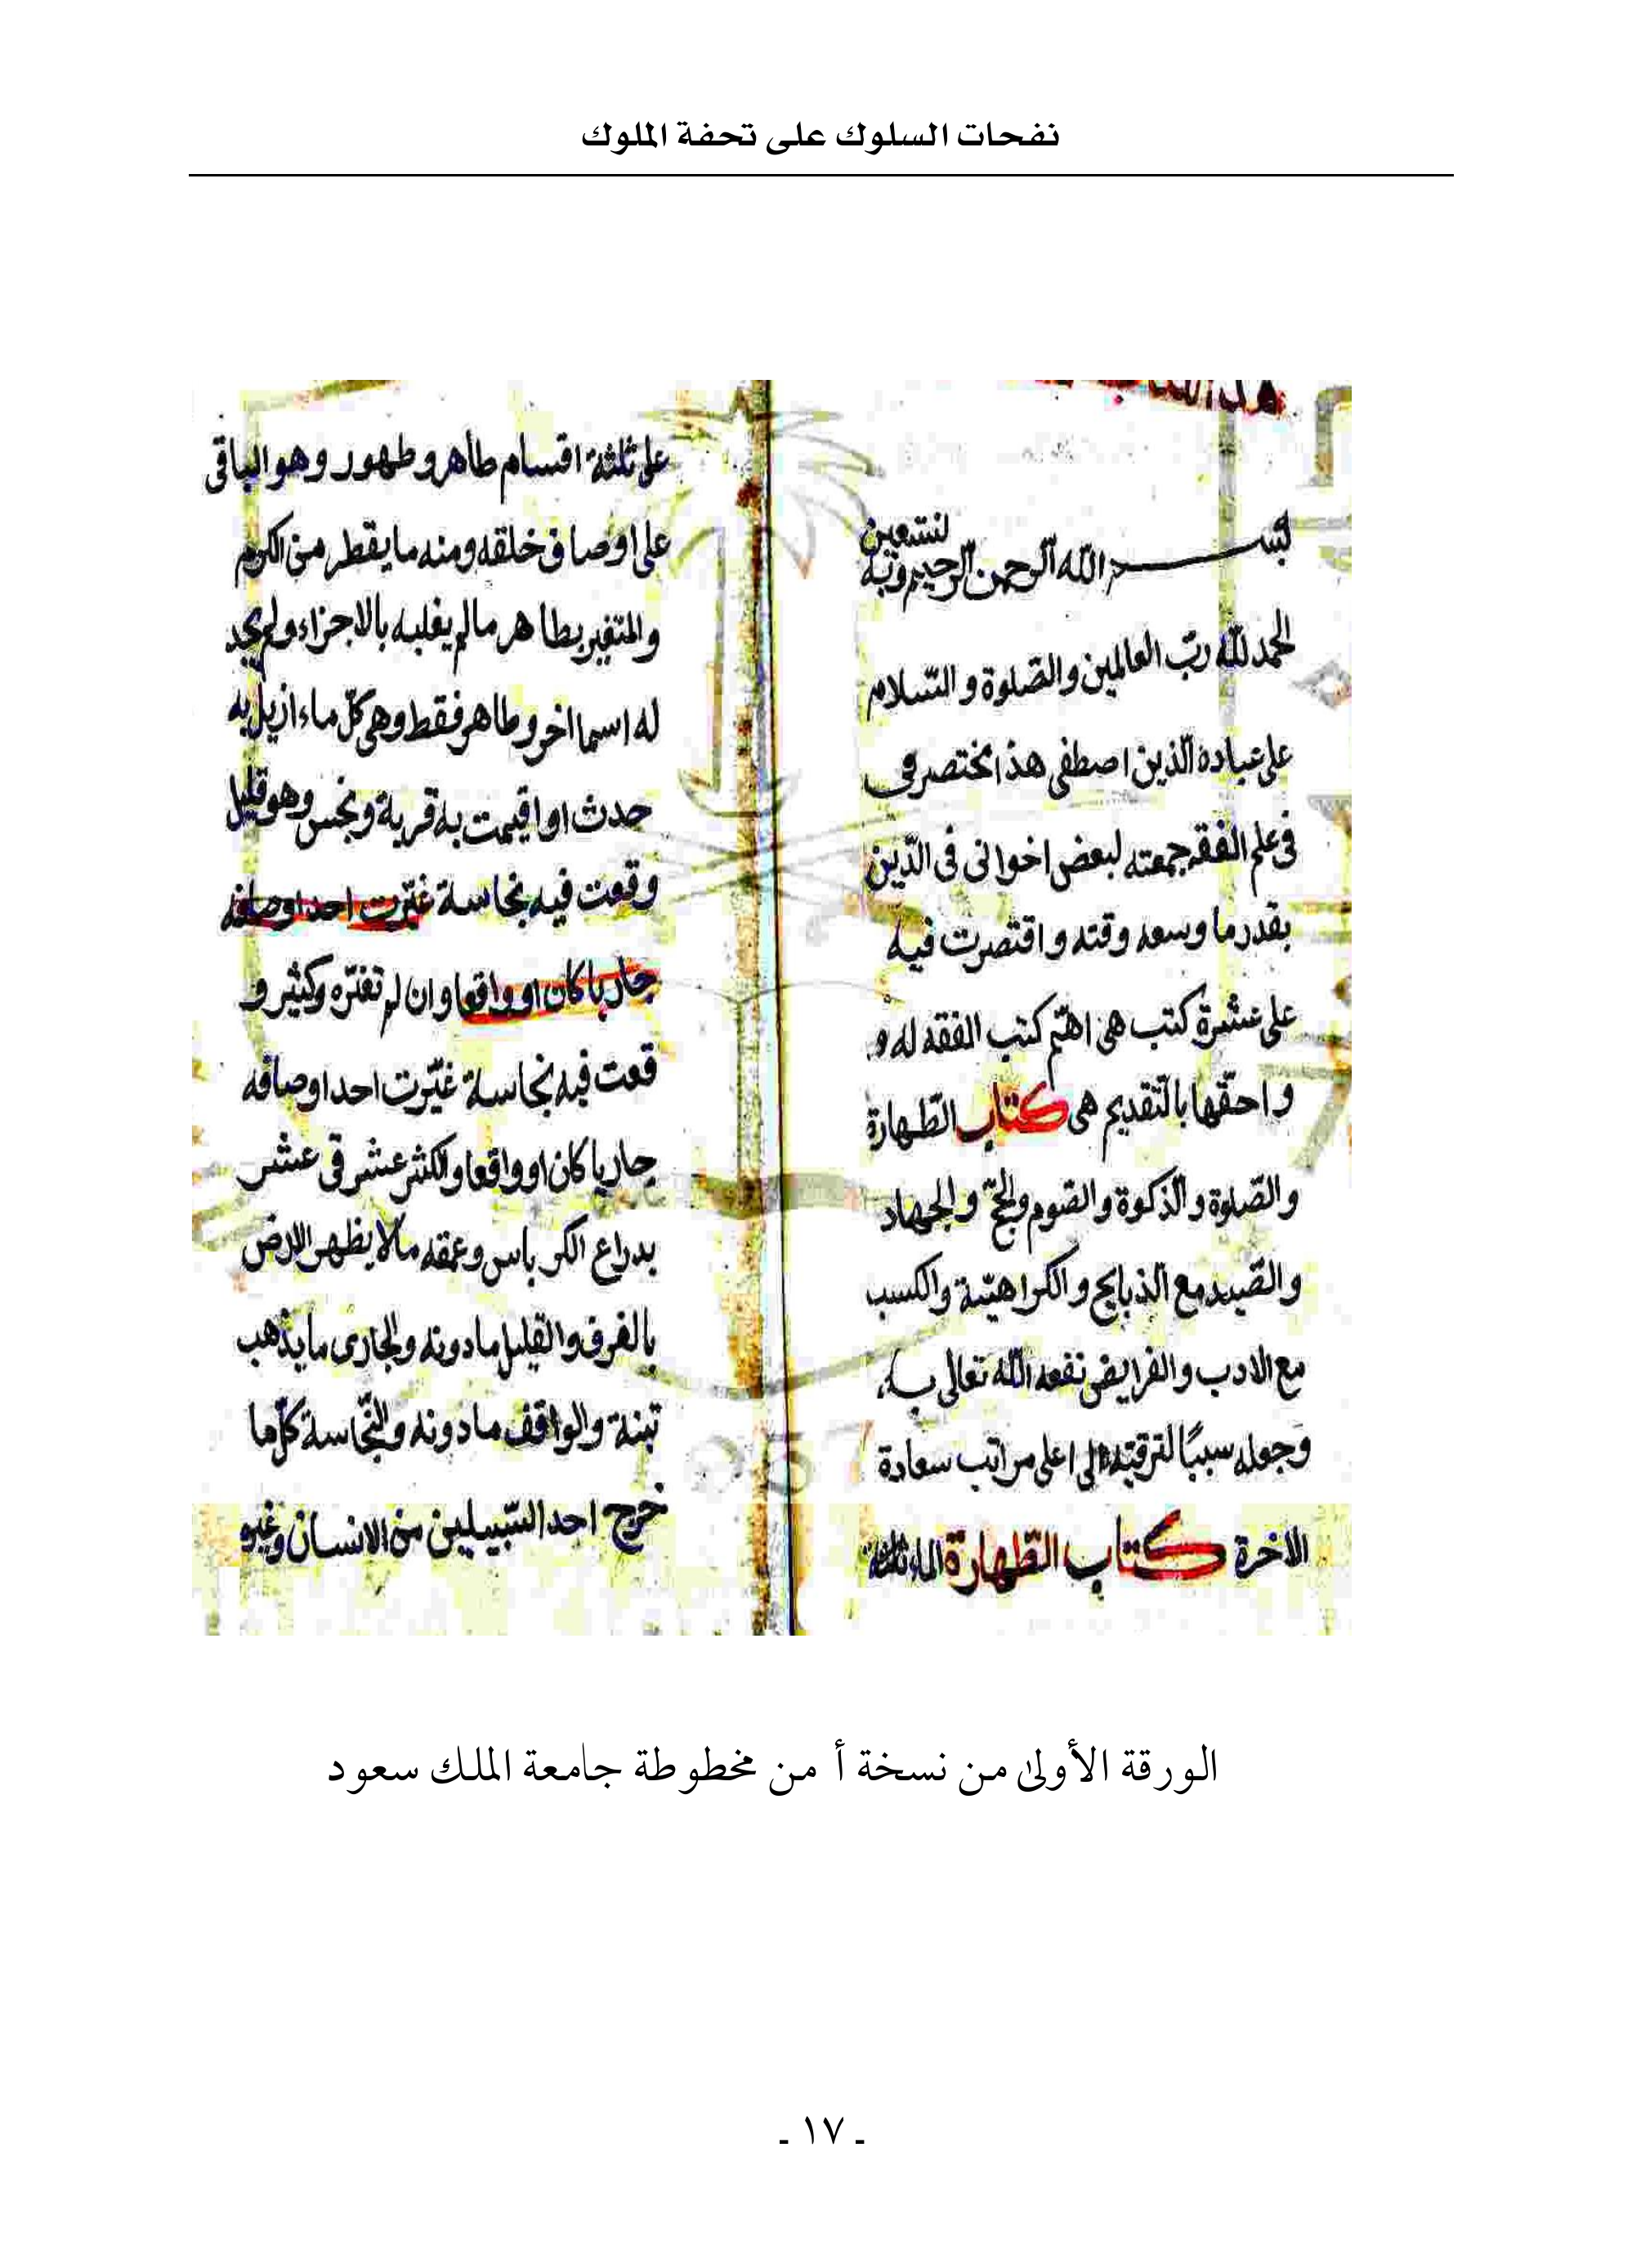 نفحات السلوك على تحفة الملوك
بسم الله الرحمن الرحيم وبه
نستعين
الحمد لله ربّ العالمين والصّلوة والسّلام
على عباده الّذين اصطفى هذا مختصر فى
فى علم الفقه جمعته لبعض اخوانى فى الدّين
بقدر ما وسعه وقته واقتصرت فيه
على عشرة كتب هى اهمّ كتب الفقه له و
واحقّها بالتّقديم هى كتاب الطّهارة
والصّلوة والزكوة والصّوم والحجّ والجهاد
والصّيد مع الذبايح والكراهيّة والكسب
مع الادب والفرايض نفعه اللّه تعالى به
وجعله سببًا لترقيته الى اعلى مراتب سعادة
الاخرة كتاب الطّهارة الماء
على ثلثة اقسام طاهر وطهور وهو الباقى
على اوصاف خلقه ومنه ما يقطر من الكرم
والمتغير بطاهر مالم يغلبه بالاجزاء ولم يجد
له اسما اخر وطاهر فقط وهى كلّ ماء ازيل به
حدث او اقيمت به قربة ونجس وهو قليل
وقعت فيه نجاسة غيّرت احد اوصافه
جاريا كان او واقعا وان لم تغيّره وكثير و
قعت فيه نجاسة غيّرت احد اوصافه
جاريا كان او واقعا والكثر عشر فى عشر
بدراع الكرباس وعمقه مالا يظهر الارض
بالغرف والقليل مادونه والجارى ما يذهب
تبنة والواقف مادونه والنّجاسة كلّ ما
خرج احد السّبيلين من الانسان وغيره
الورقة الأولى من نسخة أ من مخطوطة جامعة الملك سعود
ـ ١٧ ـ